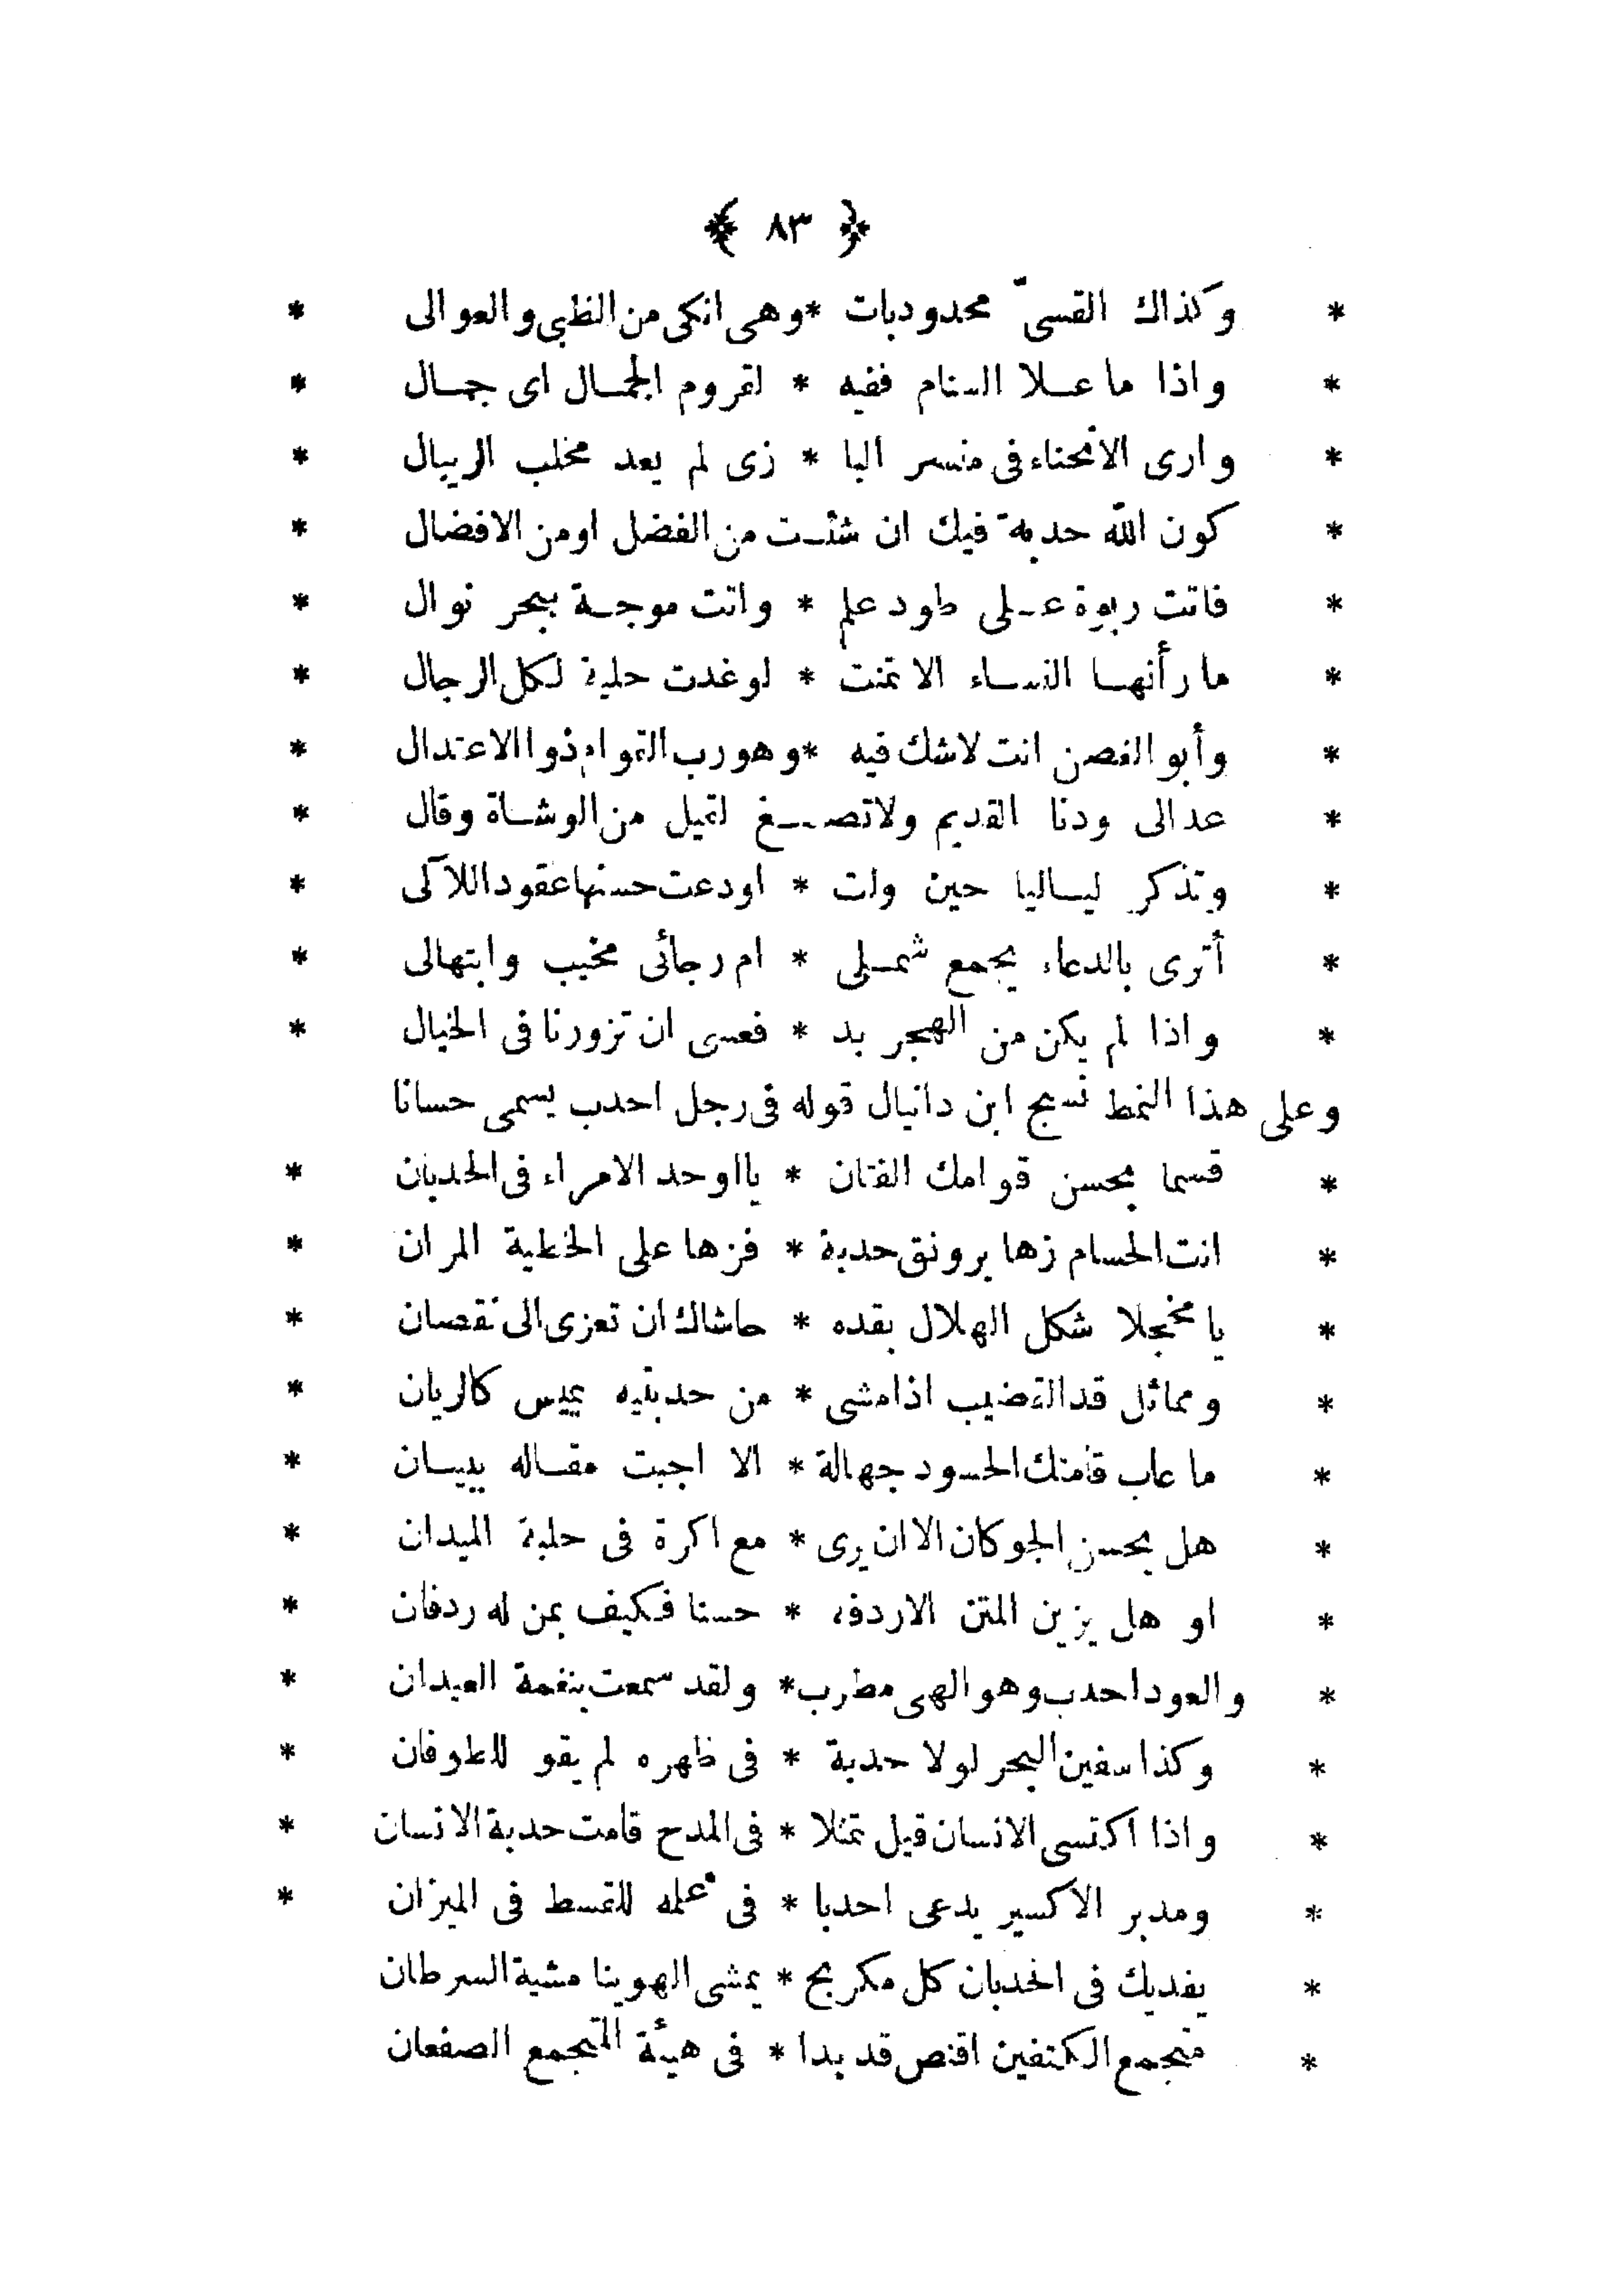 ﴿ ٨٣ ﴾
* وكذاك القسىّ محدودبات * وهى انكى من الظبى والعوالى *
* واذا ما عـلا السنام ففيه * لقروم الجمـال اى جمـال *
* وارى الانحناء فى منسر البا * زى لم يعد مخلب الريبال *
* كون الله حدبة فيك ان شئـت من الفضل اومن الافضال *
* فاتت ربوة عـلى طود علم * واتت موجـة ببحر نوال *
* ما رأنهـا النسـاء الا تمنت * لوغدت حلية لكل الرجال *
* وأبو الغصن انت لاشك فيه * وهو رب القوام ذوا الاعتدال *
* عد الى ودنا القديم ولاتصـغ لقيل من الوشـاة وقال *
* وتذكر ليـاليا حين ولت * اودعت حسنها عقود اللآلى *
* أترى بالدعاء يجمع شمـلى * ام رجائى مخيب وابتهالى *
* واذا لم يكن من الهجر بد * فعسى ان تزورنا فى الخيال *
وعلى هذا النمط نسج ابن دانيال قوله فى رجل احدب يسمى حسانا
* قسما بحسن قوامك الفتان * يااوحد الامراء فى الحدبان *
* انت الحسام زها برونق حدبة * فزها على الخطية المران *
* يا مخجلا شكل الهلال بقده * حاشاك ان تعزى الى نقصان *
* ومماثل قد القضيب اذا مشى * من حدبتيه يميس كالريان *
* ما عاب قامتك الحسود جهالة * الا اجبت مقـاله ببيـان *
* هل يحسن الجوكان الا ان يرى * مع اكرة فى حلبة الميدان *
* او هل يزين المتن الاردفه * حسنا فكيف بمن له ردفان *
* والعود احدب وهو الهى مطرب * ولقد سمعت بنغمة العيدان *
* وكذا سفين البحر لولا حدبة * فى ظهره لم يقو للطوفان *
* واذا اكتسى الانسان قيل تمثلا * فى المدح قامت حدبة الانسان *
* ومدبر الاكسير يدعى احدبا * فى عمله للقسط فى الميزان *
* يفديك فى الحدبان كل مكربج * يمشى الهوينا مشية السرطان
* متجمع الكتفين اقنص قد بدا * فى هيئة المتجمع الصفعان